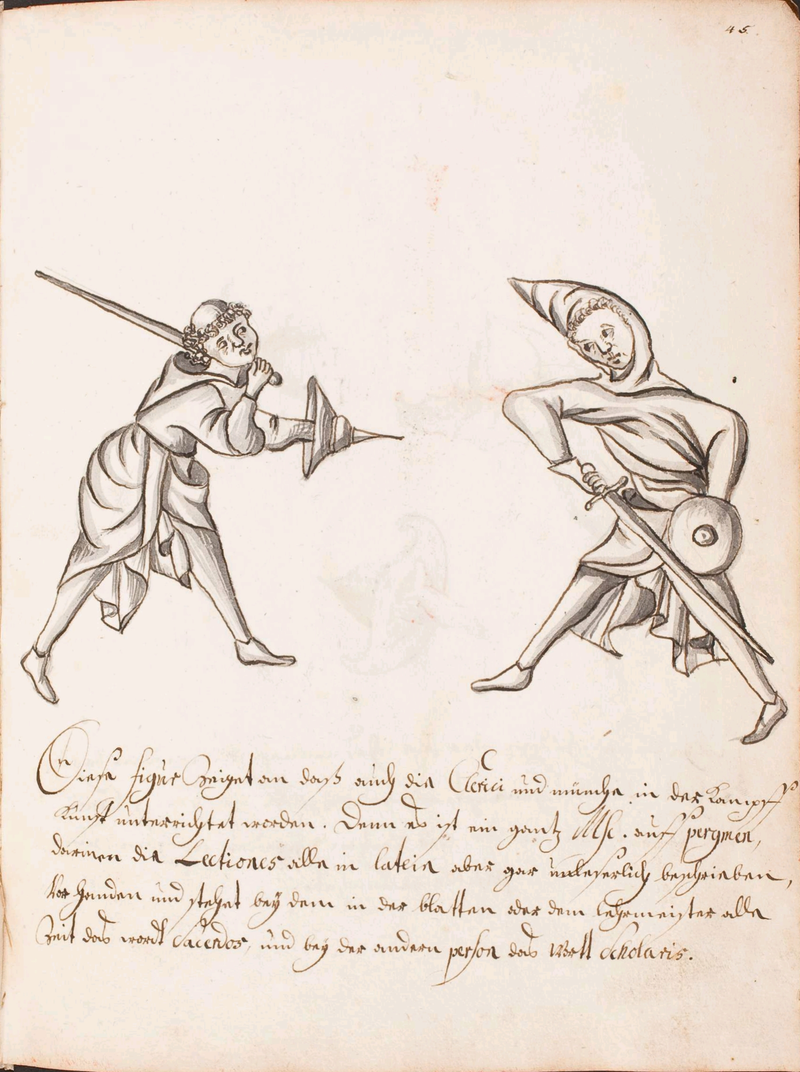 45.
Diese figur Zeiget an daß auch die Clerici und münche in der Kampff
Kunst unterrichtet worden. Denn es ist ein gantz Msc. auff pergmen,
darinen die Lectiones alle in latein aber gar unleserlich beschrieben,
Vorhanden und stehet beÿ dem in der blatten oder dem lehrmeister alle
Zeit das wordt Sacerdos, und beÿ der andern person das Wortt Scholaris.